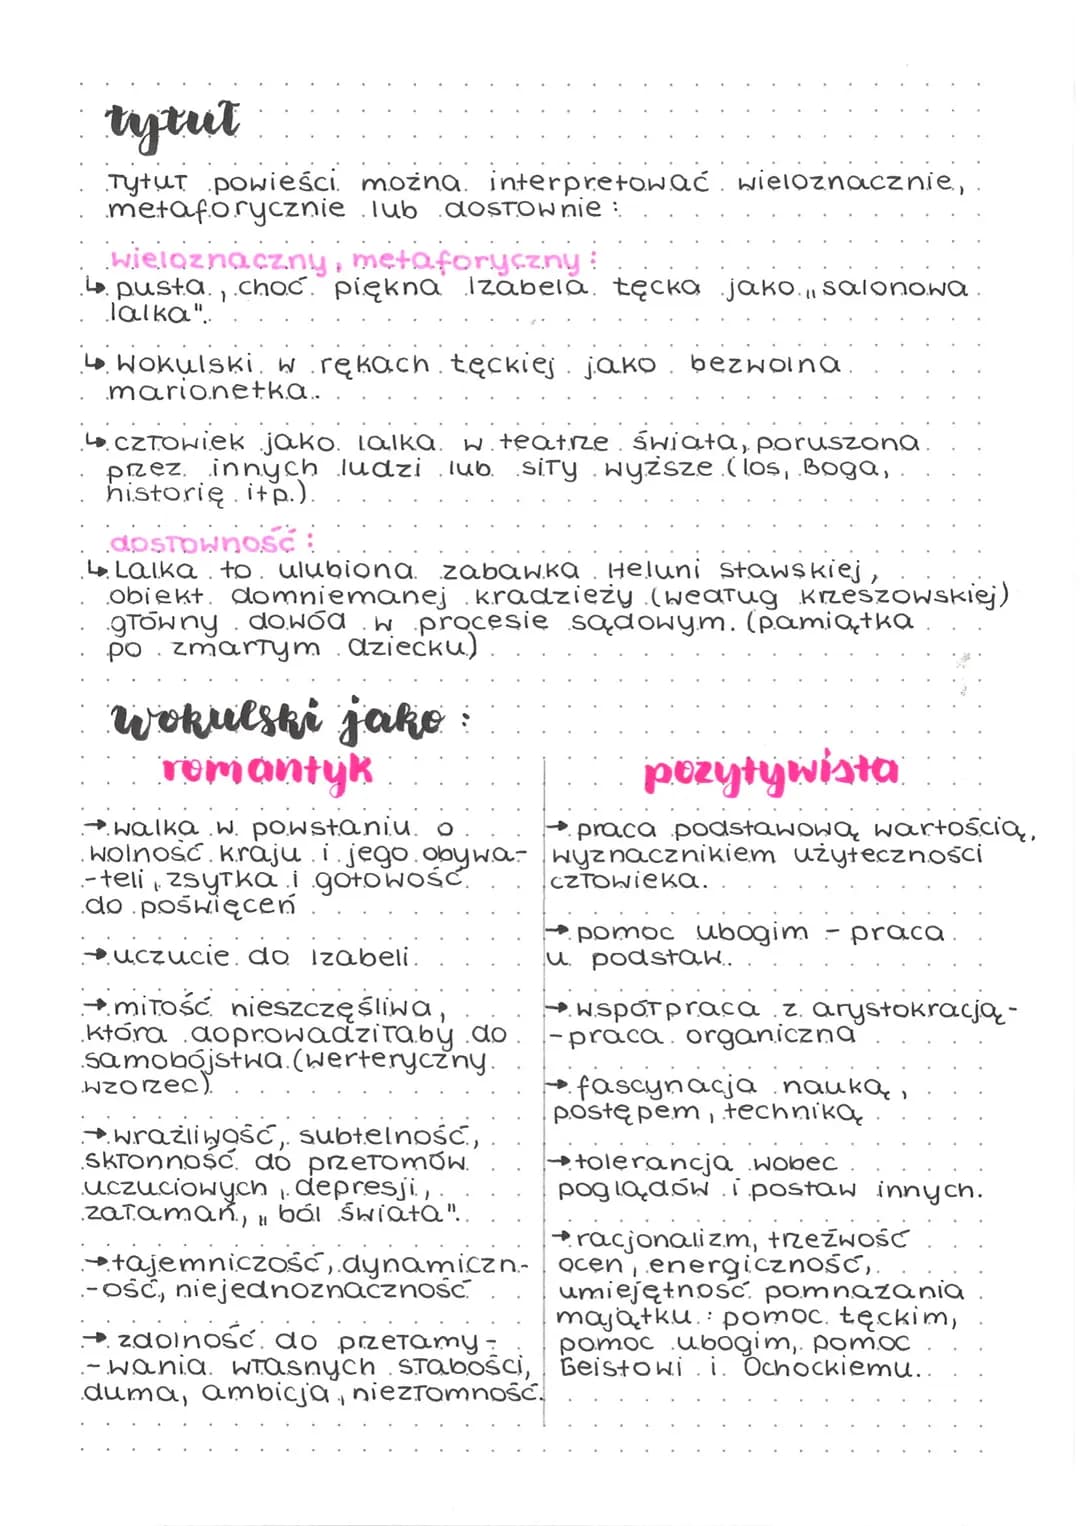 tytuł
Tytuł powieści można interpretować wieloznacznie,
metaforycznie lub dosłownie:
wieloznaczny, metaforyczny:
↳ pusta, choć piękna Izabela Łęcka jako „salonowa
lalka".
↳ Wokulski w rękach Łęckiej jako bezwolna
marionetka.
↳ człowiek jako lalka w teatrze świata, poruszona
przez innych ludzi lub siły wyższe (los, Boga,
historię itp.).
dosłowność:
↳ Lalka to ulubiona zabawka Heluni Stawskiej,
obiekt domniemanej kradzieży (według Krzeszowskiej)
główny dowód w procesie sądowym. (pamiątka
po zmarłym dziecku)
Wokulski jako:
romantyk
→ walka w powstaniu o
wolność kraju i jego obywa-
-teli, zsyłka i gotowość
do poświęceń
→ uczucie do Izabeli.
→ miłość nieszczęśliwa,
która doprowadziłaby do
samobójstwa (werteryczny
wzorzec).
→ wrażliwość, subtelność,
skłonność do przełomów
uczuciowych, depresji,
załamań, „ból świata".
→ tajemniczość, dynamiczn-
-ość, niejednoznaczność
→ zdolność do przełamy-
-wania własnych słabości,
duma, ambicja, niezłomność.
pozytywista
→ praca podstawową wartością,
wyznacznikiem użyteczności
człowieka.
→ pomoc ubogim - praca
u podstaw.
→ współpraca z arystokracją-
-praca organiczna
→ fascynacja nauką,
postępem, techniką
→ tolerancja wobec
poglądów i postaw innych.
→ racjonalizm, trzeźwość
ocen, energiczność,
umiejętność pomnażania
majątku: pomoc Łęckim,
pomoc ubogim, pomoc
Geistowi i Ochockiemu.